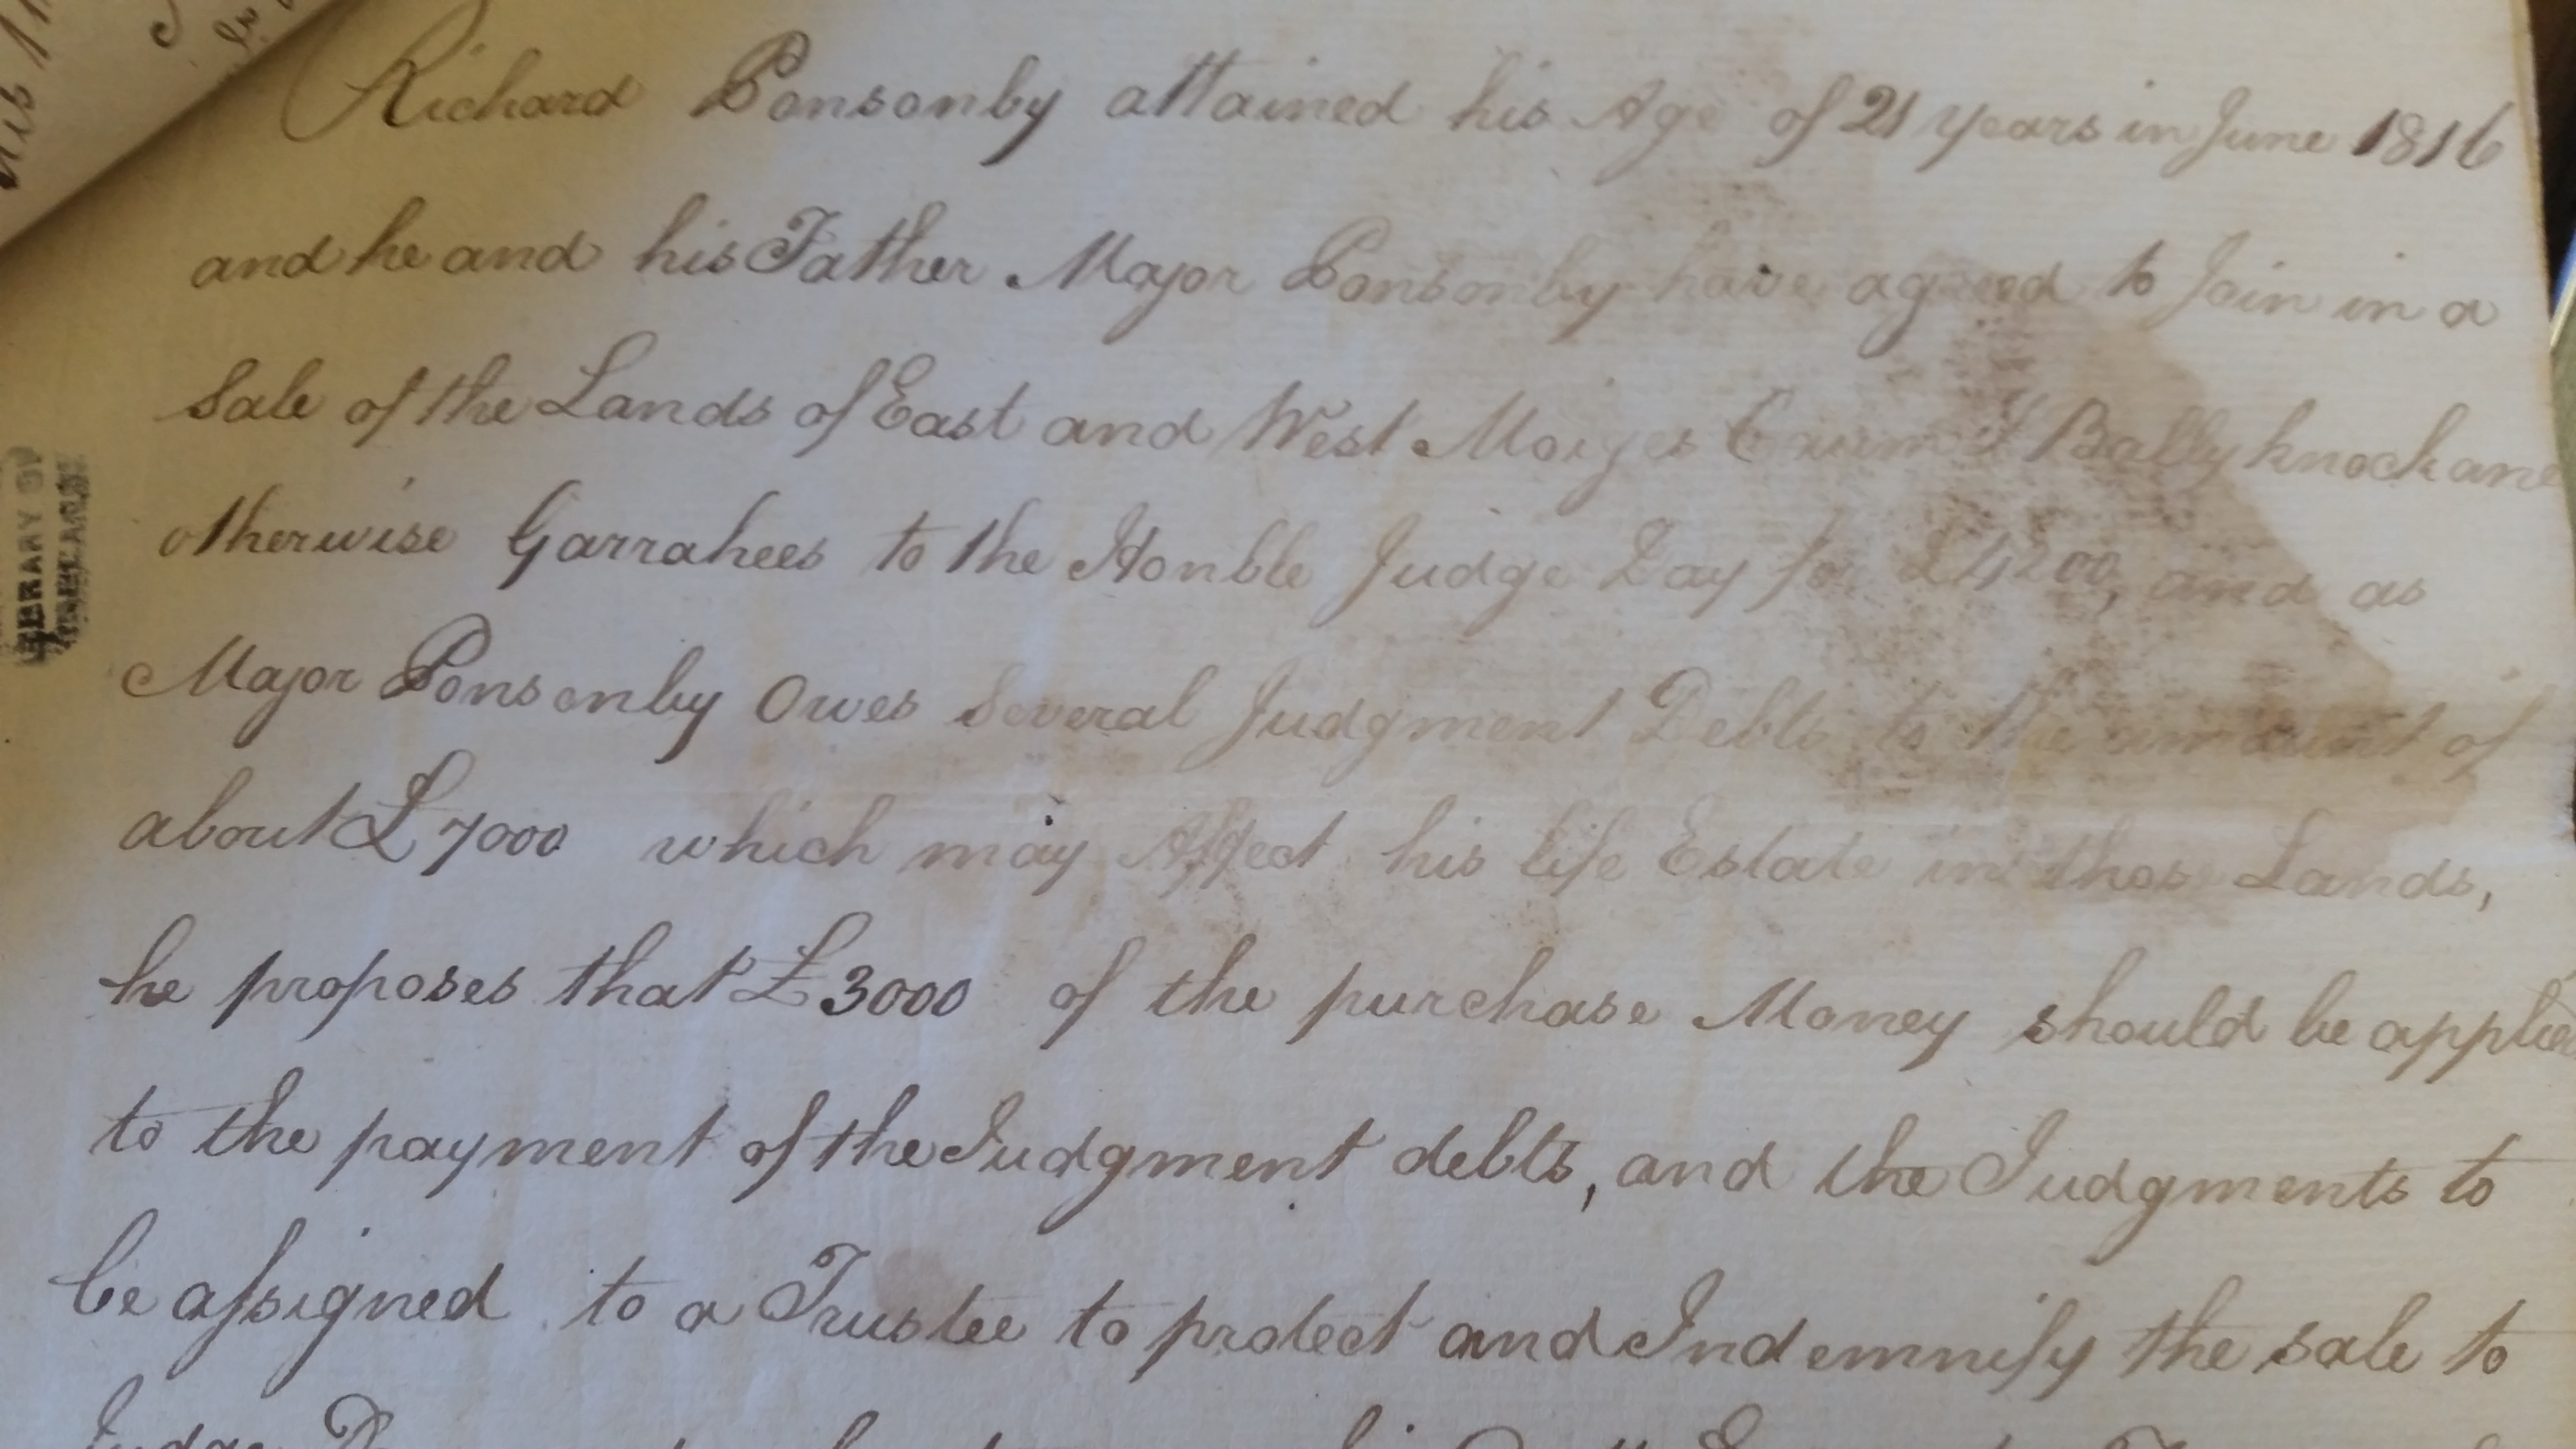 Richard Ponsonby attained his Age of 21 years in June 1816
and he and his Father Major Ponsonby have agreed to Join in a
Sale of the Lands of East and West Ballyknockane
otherwise Garrahees to the Honble Judge Day for £4200, and as
Major Ponsonby Owes Several Judgment Debts to the amount of
about £7000 which may Affect his life Estate in those Lands,
he proposes that £3000 of the purchase Money should be applied
to the payment of the Judgment debts, and the Judgments to
be assigned to a Trustee to protect and Indemnify the sale to
LIBRARY OF
IRELAND